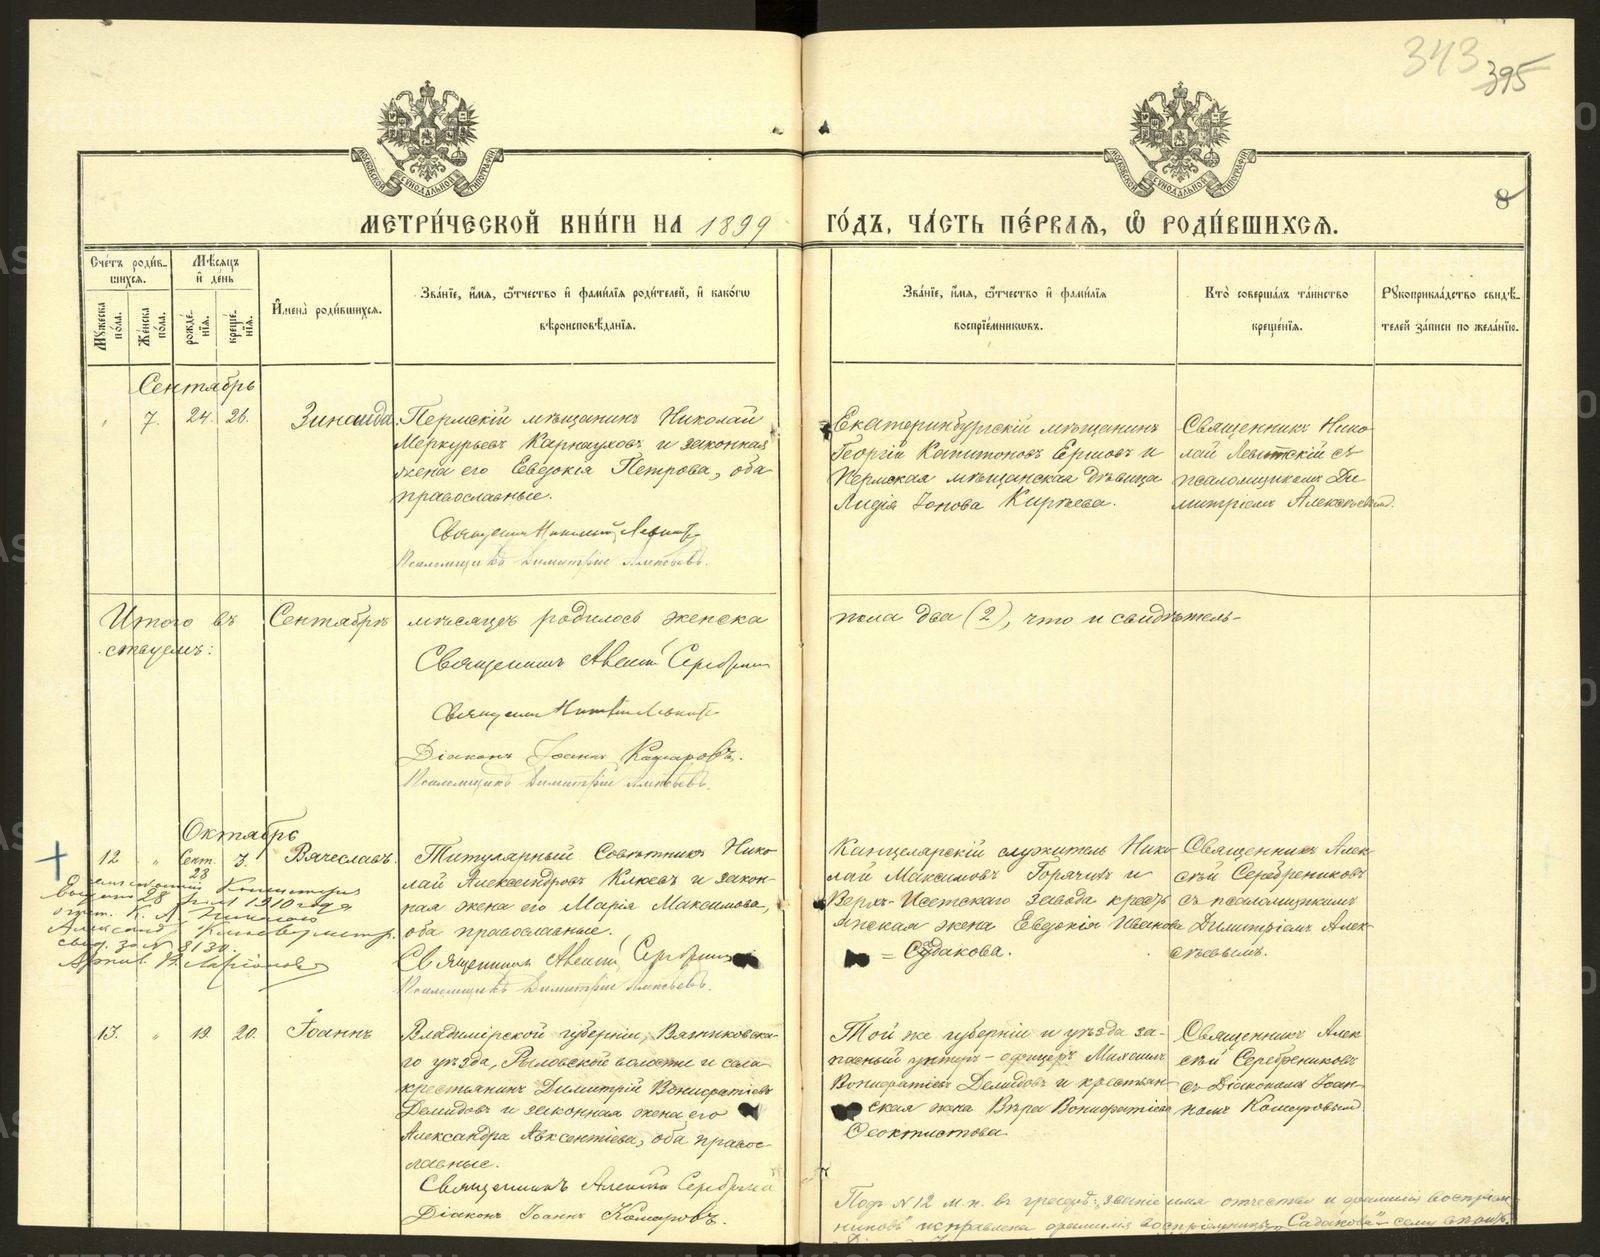 343
395
8
МЕТРИ́ЧЕСКОЙ КНИ́ГИ НА 1899
ГО́ДЪ, ЧА́СТЬ ПЕ́РВАЯ, Ѡ҆ РОДИ́ВШИХСЯ.
Сче́тъ роди́в-
шихся.
Му́жеска по́ла.
Же́нска по́ла.
Мѣ́сяцъ и҆ де́нь
рожде́нїя.
креще́нїя.
И҆мена̀ роди́вшихся.
Зва́нїе, и҆́мя, ѻ҆́тчество и҆ фами́лїя роди́телей, и҆ како́гѡ
вѣроисповѣ́данїя.
Зва́нїе, и҆́мя, ѻ҆́тчество и҆ фами́лїя
воспрїе́мниковъ.
Кто̀ соверша́лъ та́инство
креще́нїя.
Рꙋкоприкла́дство свидѣ́-
телей за́писи по жела́нїю.
Сентябрь
7. 24. 26. Зинаида
Пермскій мѣщанинъ Николай
Меркурьевъ Карнауховъ и законная
жена его Евдокія Петрова, оба
православные.
Священникъ Николай Левитскій
Псаломщикъ Димитрій Алексѣевъ.
Екатеринбургскій мѣщанинъ
Георгій Капитоновъ Ершовъ и
Пермская мѣщанская дѣвица
Лидія Іонова Киреева.
Священникъ Нико
лай Левитскій съ
псаломщикомъ Ди
митріемъ Алексѣевымъ.
Итого въ Сентябрѣ мѣсяцѣ родилось женска пола два (2), что и свидѣтель-
ствуемъ:
Священникъ Алексій Серебрениковъ
Священникъ Николай Левитскій
Діаконъ Іоаннъ Комаровъ.
Псаломщикъ Димитрій Алексѣевъ.
Октябрь
12 " Сент. 28 3. Вячеславъ.
Титулярный Совѣтникъ Нико
лай Александровъ Клюевъ и закон-
ная жена его Марія Максимова,
оба православные.
Священникъ Алексій Серебрениковъ
Псаломщикъ Димитрій Алексѣевъ.
Канцелярскій служитель Нико
лай Максимовъ Горячихъ и
Верхъ-Исетскаго завода кресть
янская жена Евдокія Иванова
= Судакова.
Священникъ Алек
сѣй Серебрениковъ
съ псаломщикомъ
Димитріемъ Алек
сѣевымъ.
1910 года
Николаю
свид. за № 3139.
13. " 19. 20. Іоаннъ
Владимірской губерніи, Вязниковска-
го уѣзда, Рыловской волости и села
крестьянинъ Димитрій Вонифатіевъ
Демидовъ и законная жена его
Александра Авксентіева, оба право-
славные.
Священникъ Алексій Серебрениковъ
Діаконъ Іоаннъ Комаровъ.
Той же губерніи и уѣзда за-
пасный унтеръ-офицеръ Михаилъ
Вонифатіевъ Демидовъ и крестьян-
ская жена Вѣра Вонифатіева
Ѳеоктистова.
Священникъ Алек
сѣй Серебрениковъ
съ Діакономъ Іоан-
номъ Комаровымъ.
Подъ № 12 м. п. въ графѣ: "званіе имя отчество и фамилія воспріем
никовъ" исправлена фамилія воспріемницы "Садакова"